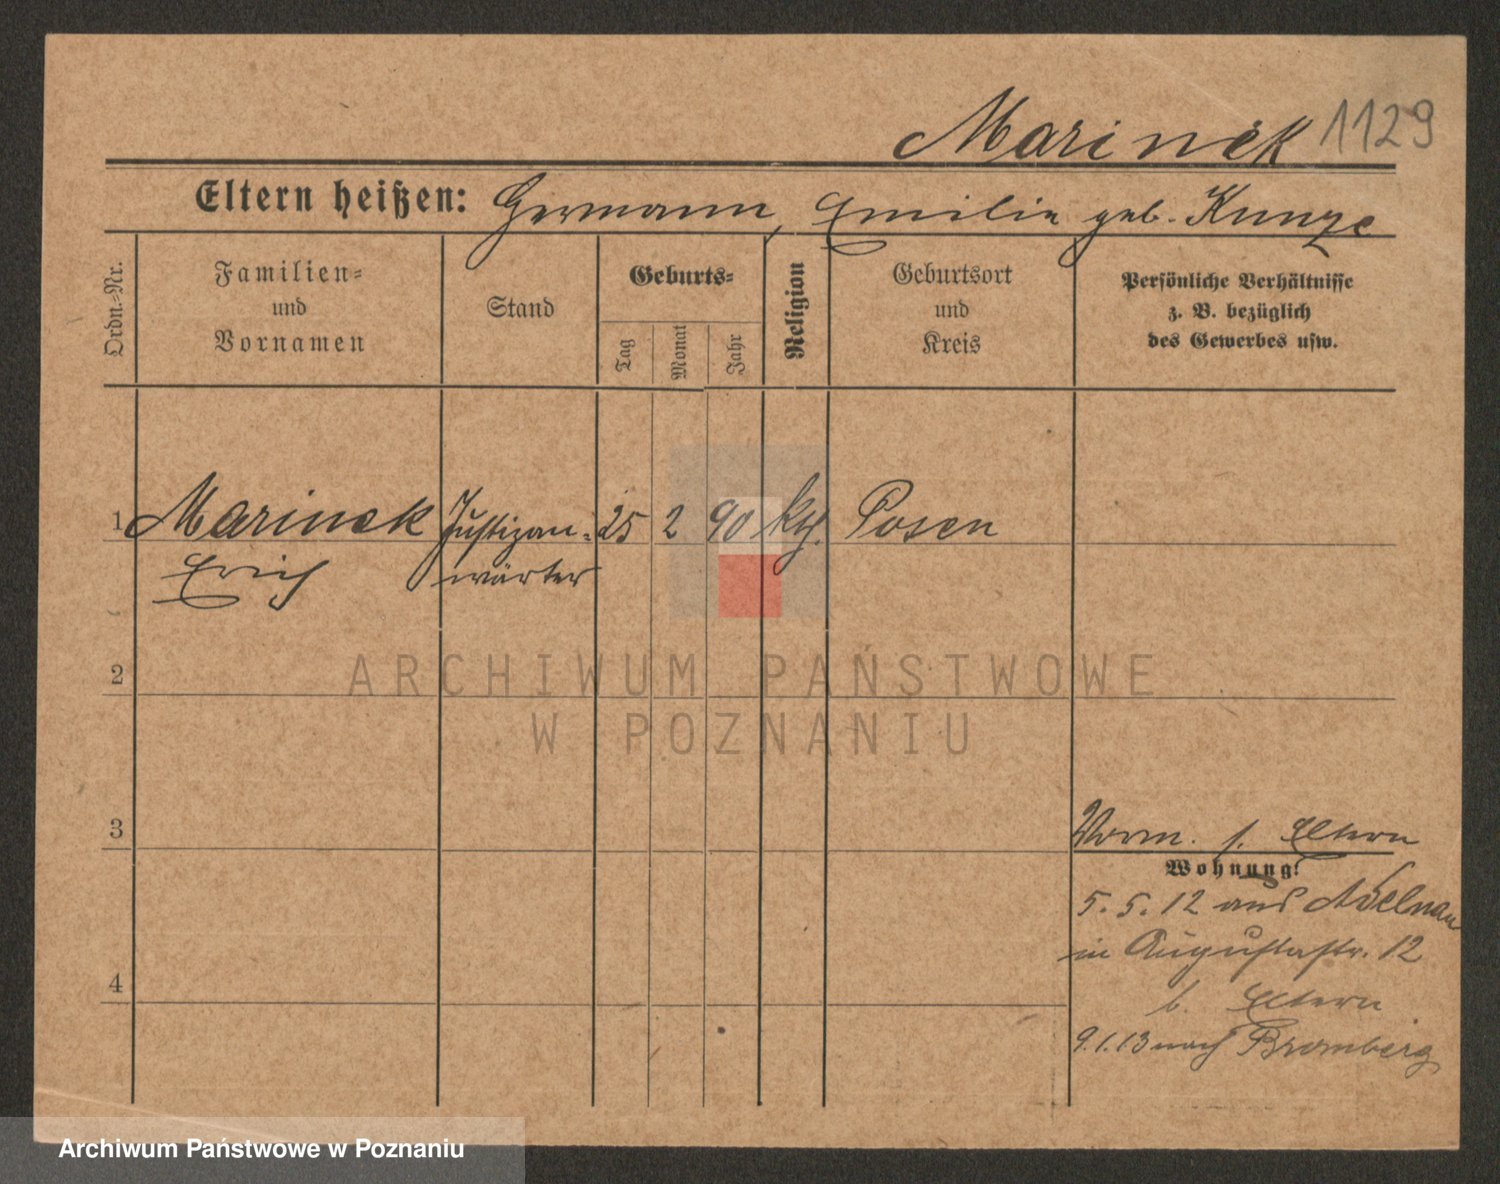 Marinek 1129
Eltern heißen: Hermann, Emilie geb. Kunze
Ordn.=Nr.
Familien=
und
Vornamen
Stand
Geburts=
Tag
Monat
Jahr
Religion
Geburtsort
und
Kreis
Persönliche Verhältnisse
z. B. bezüglich
des Gewerbes usw.
1 Marinek Justizan= 25 2 90 kth. Posen
Erich wärter
2
ARCHIWUM PAŃSTWOWE
W POZNANIU
3
Vorm. s. Eltern
Wohnung:
5. 5. 12 aus Adelnau
in Augustastr. 12
4
b. Eltern
9. 1. 13 nach Bromberg
Archiwum Państwowe w Poznaniu